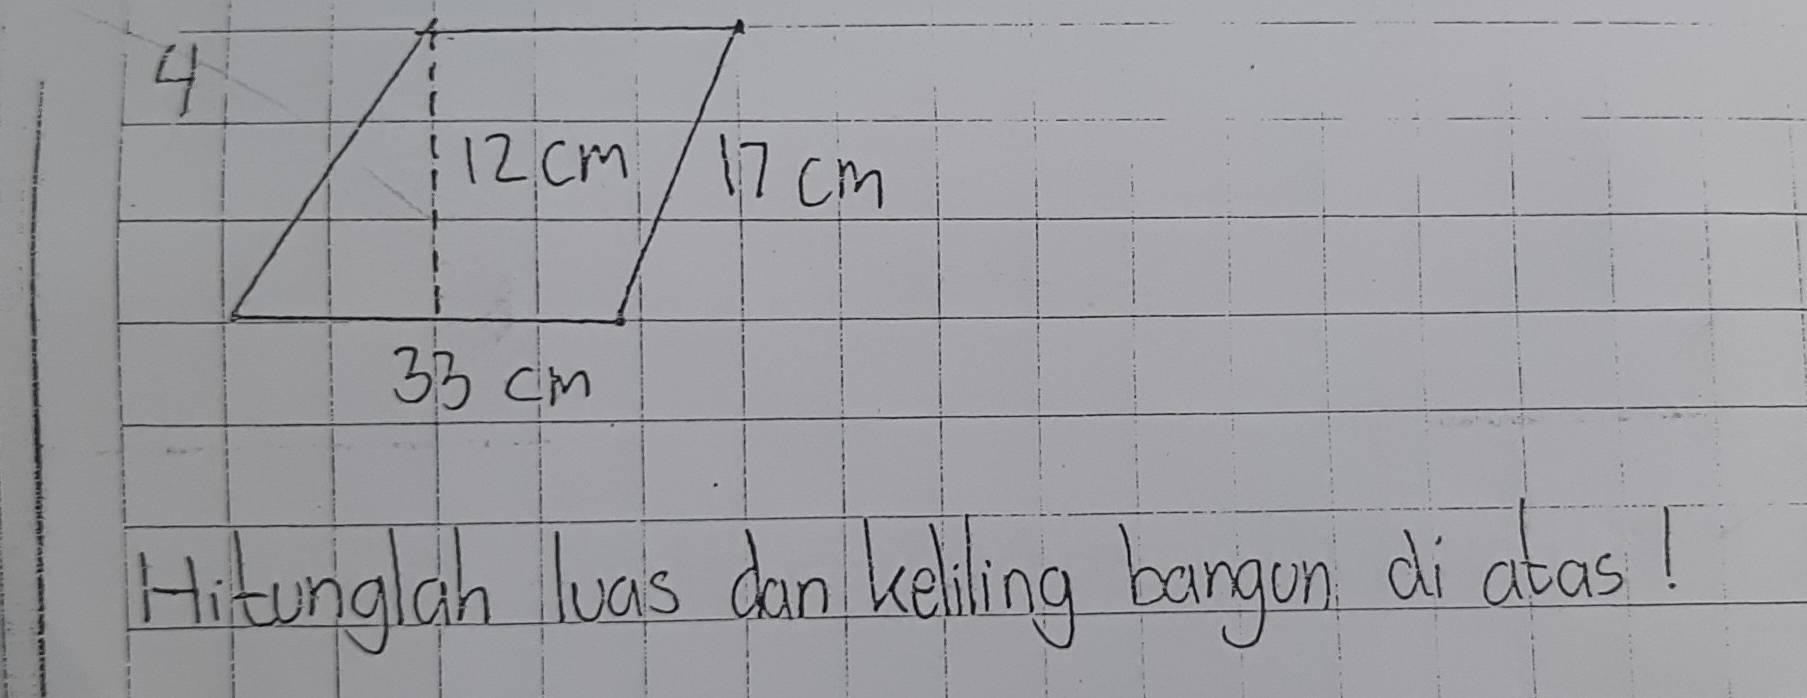 4
12 cm
17 cm
33 cm
Hitunglah luas dan keliling bangun di atas!